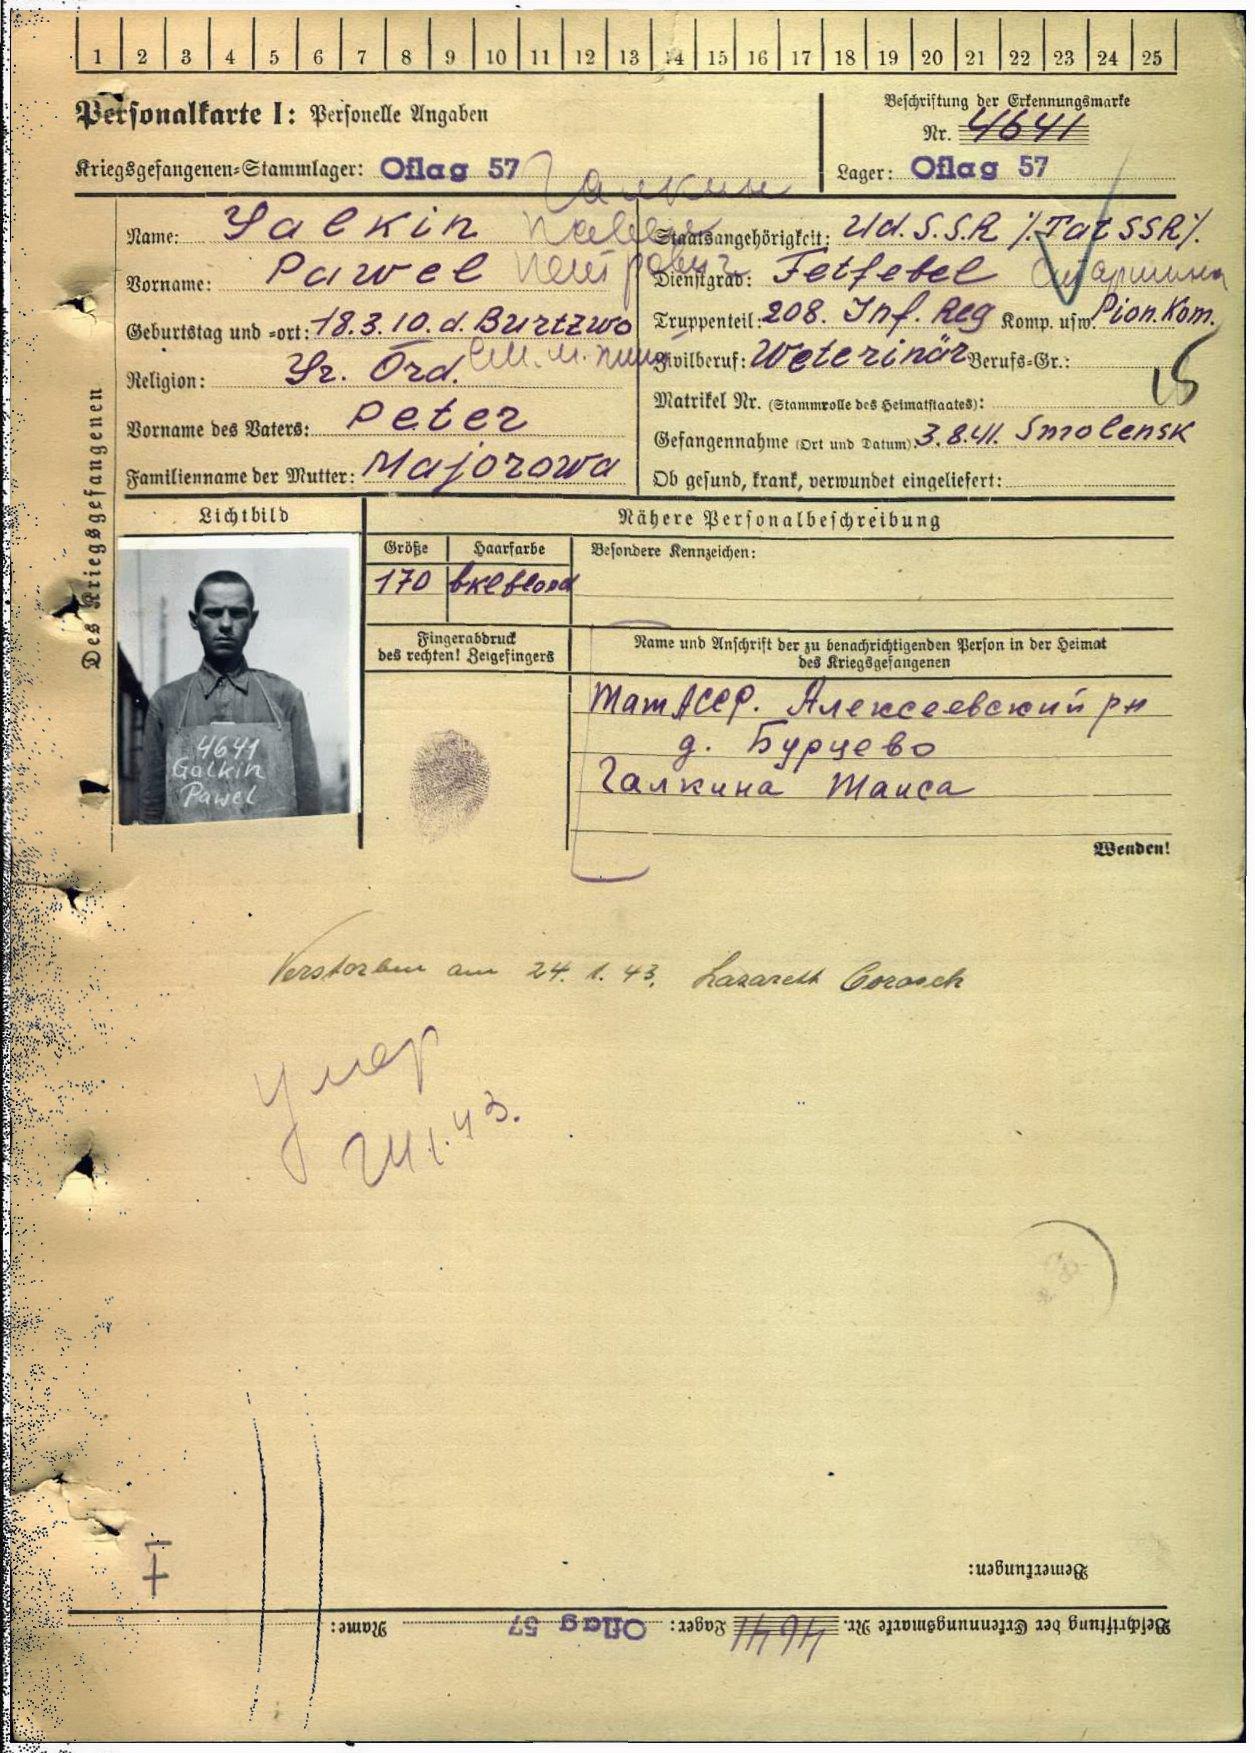 1 2 3 4 5 6 7 8 9 10 11 12 13 14 15 16 17 18 19 20 21 22 23 24 25
Personalkarte I: Personelle Angaben
Beschriftung der Erkennungsmarke
Nr. 4641
Kriegsgefangenen-Stammlager: Oflag 57
Lager: Oflag 57
Галкин
Павел
Петрович
Des Kriegsgefangenen
Name: Galkin
Vorname: Pawel
Geburtstag und =ort: 18.3.10. d. Burtzwo
Religion: Gr. Ord.
Vorname des Vaters: Peter
Familienname der Mutter: Majorowa
Staatsangehörigkeit: Ud.S.S.R /.Tat SSR/.
Dienstgrad: Fetfebel Старшина
Truppenteil: 208. Inf. Reg Komp. usw. Pion. Kom.
Zivilberuf: Weterinär Berufs-Gr.:
Matrikel Nr. (Stammrolle des Heimatstaates):
Gefangennahme (Ort und Datum): 3.8.41. Smolensk
Ob gesund, krank, verwundet eingeliefert:
Lichtbild
Nähere Personalbeschreibung
Größe Haarfarbe Besondere Kennzeichen:
170
Fingerabdruck
des rechten! Zeigefingers
Name und Anschrift der zu benachrichtigenden Person in der Heimat
des Kriegsgefangenen
ТатАССР. Алексеевский рн
д. Бурцево
Галкина Таиса
4641
Galkin
Pawel
Wenden!
Verstorben am 24. 1. 43. Lazarett
Умер
24.1.43.
Bemerkungen:
Beschriftung der Erkennungsmarke Nr. 4641 Lager: Oflag 57 Name: